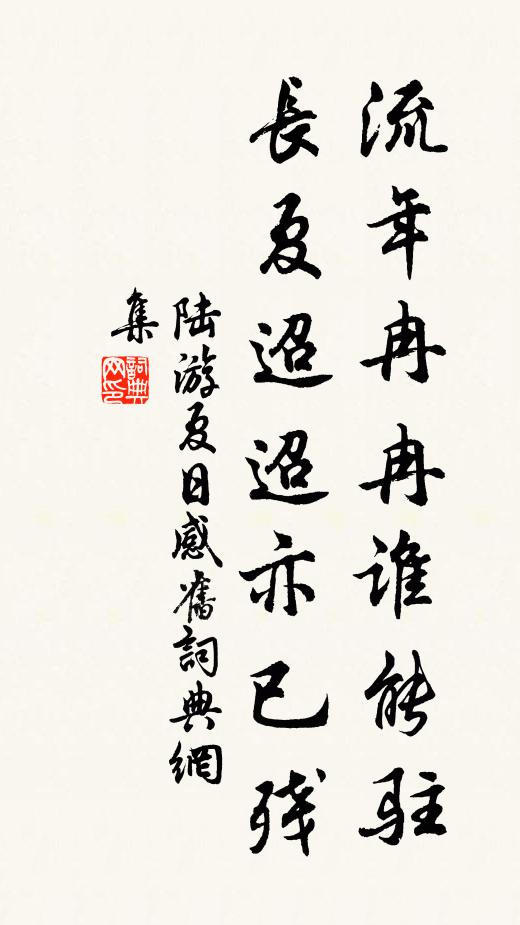 流年冉冉谁能驻
長夏迢迢亦已残
陆游夏日感舊詞典網
集
詞典
网印